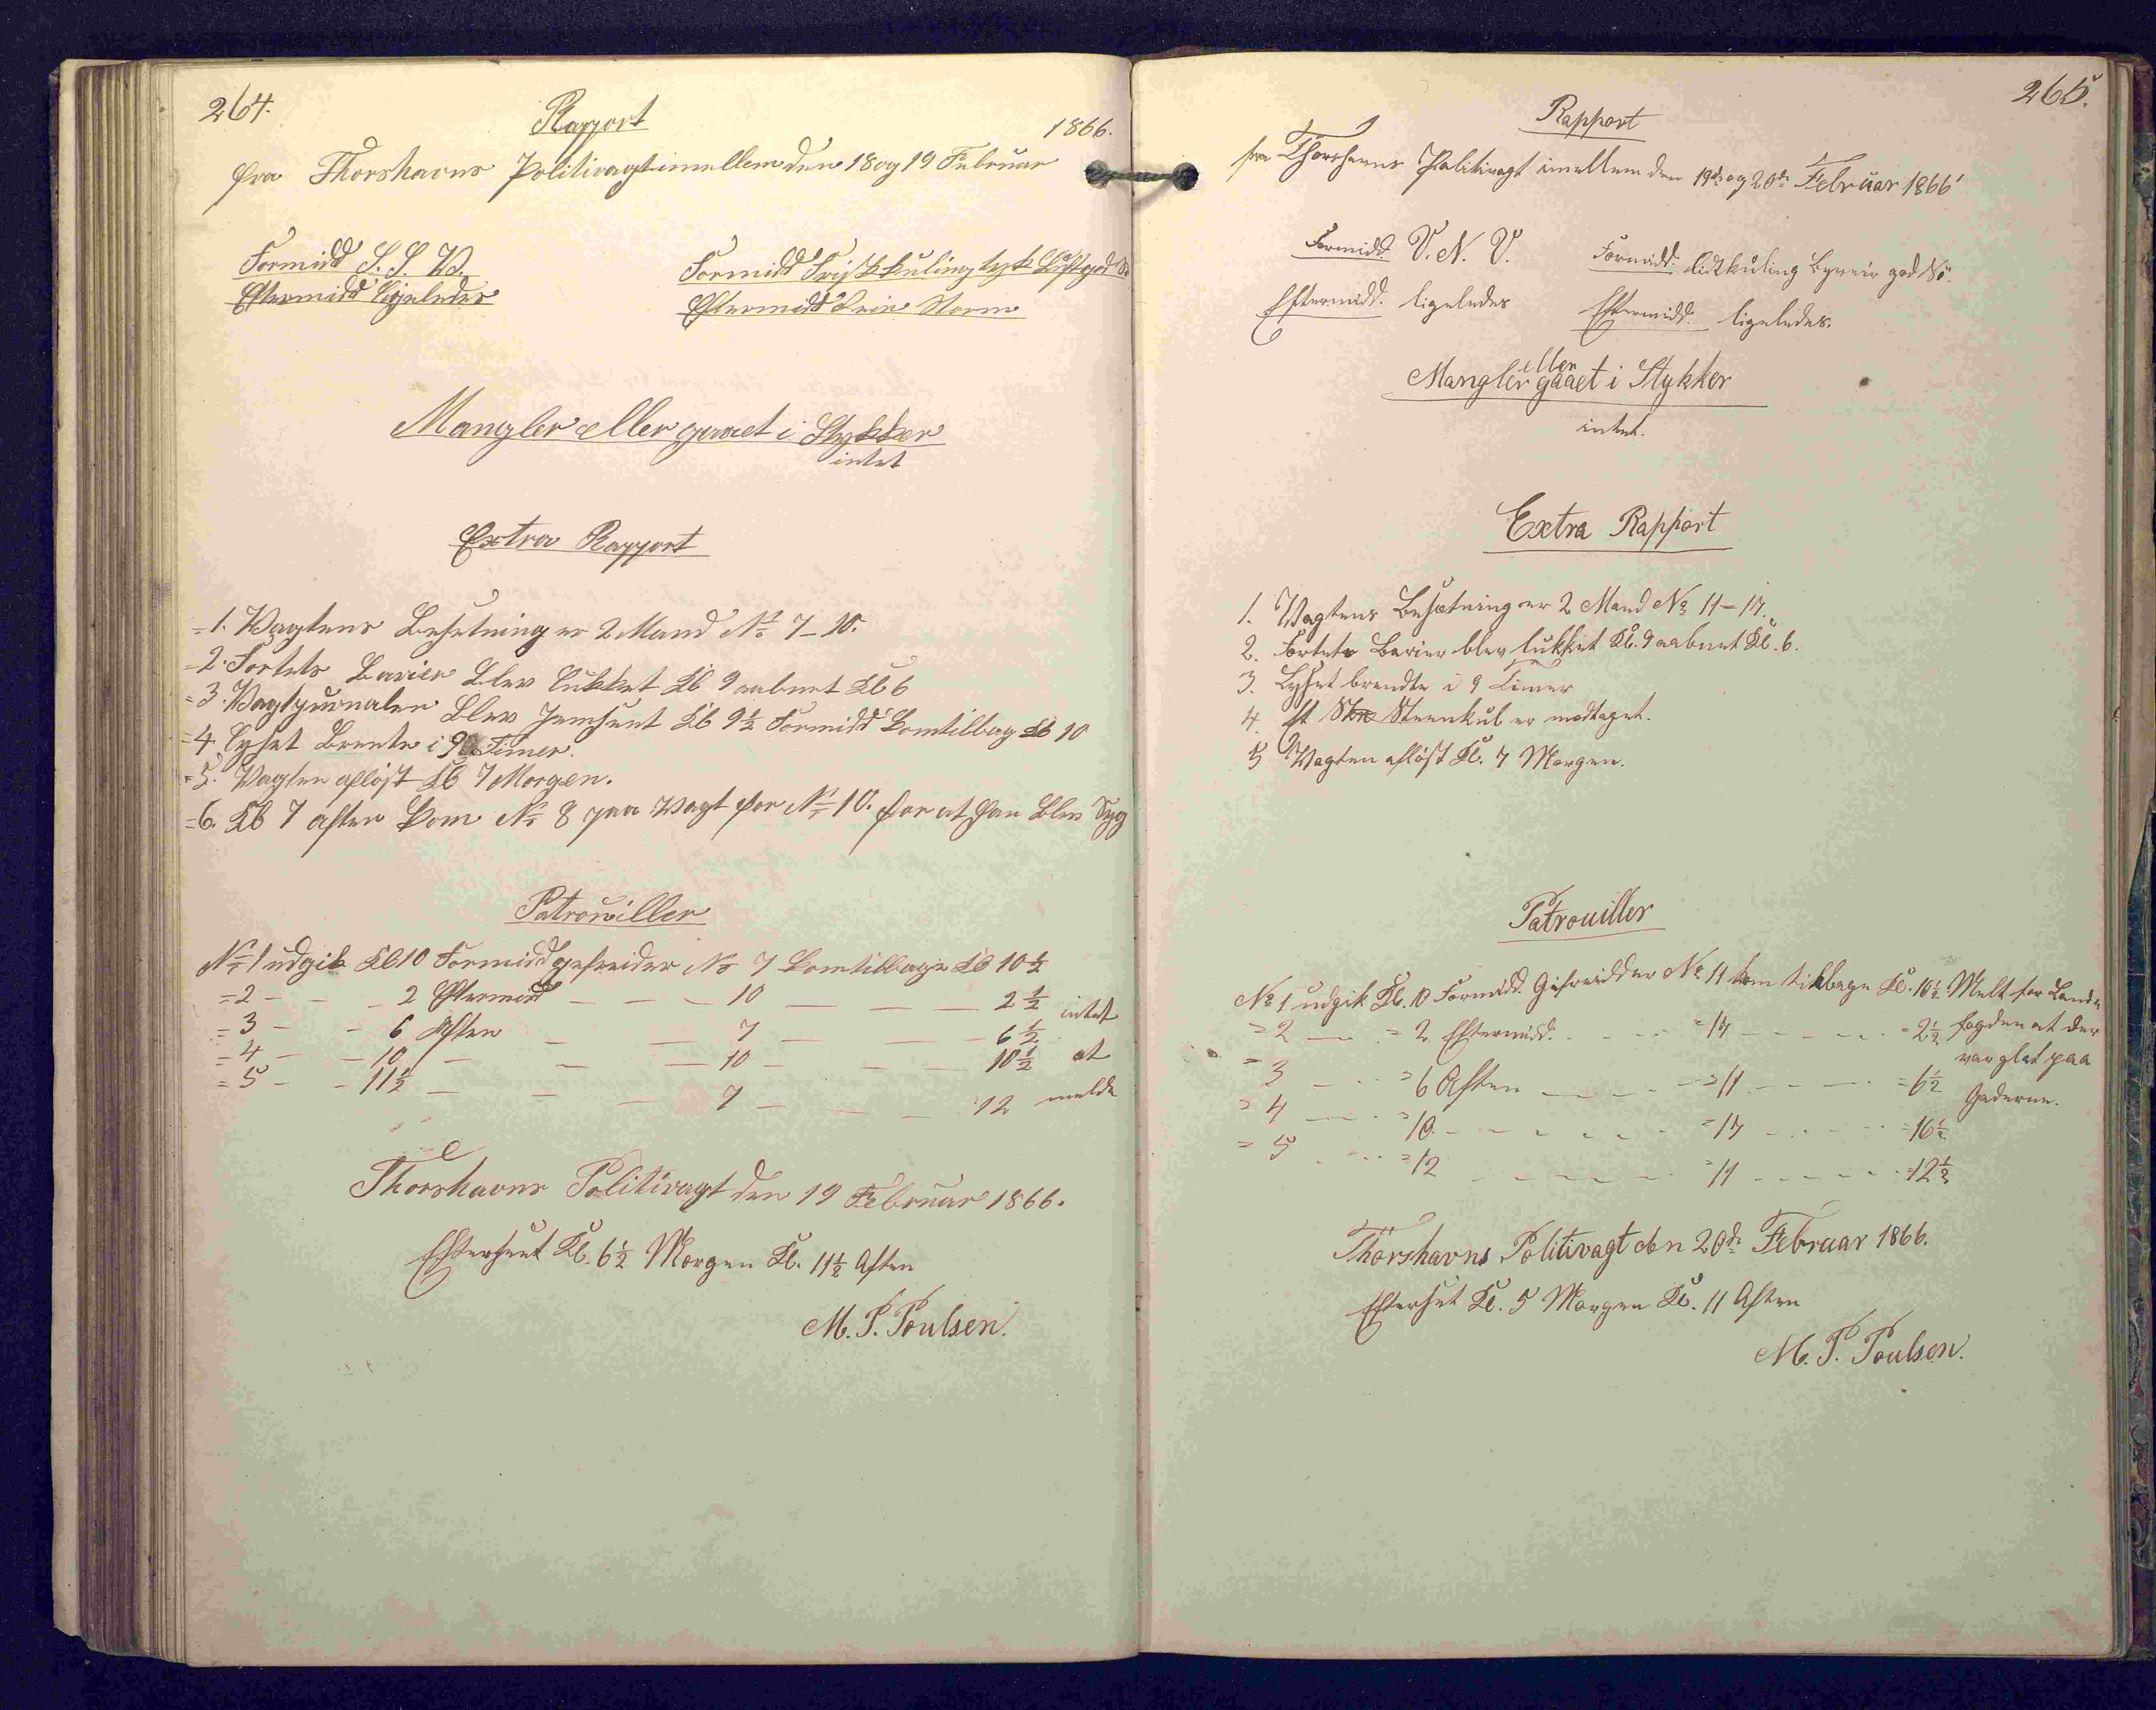 264.
Rapport
1866.
fra Thorshavns Politivagt imellem den 18 og 19 Februar
Formidd S. S. V.
Eftermidd ligeledes
Formidd Friskkuling tyk Luft god
Eftermidd Storm
Mangler eller gaaet i Stykker
intet
Extra Rapport
=1. Vagtens Besetning er 2 Mand No 7–10.
=2. Fortets Barier blev lukket Kl 9 aabnet Kl 6
=3. Vagtjuurnalen blev Kl 9½ Formidd kom tilbag Kl 10
=4 Lyset brente i 9 Timer.
=5. Vagten afløst Kl 7 Morgen.
=6. Kl 7 aften kom No 8 paa Vagt for No 10. for at han blev Syg
Patrouiller
No 1 udgik Kl 10 Formidd gefreider No 7 kom tilbage Kl 10½
=2 – – – 2 Eftermidd – – – 10 – – – 2½ intet
=3 – – 6 Aften – – 7 – – – 6½
=4 – – 10 – – – 10 – – – 10½ at
=5 – – 11½ – – – 7 – – – 12 melde
Thorshavns Politivagt den 19 Februar 1866.
Efterseet Kl. 6½ Morgen Kl. 11½ Aften
M. P. Poulsen.
265.
Rapport
fra Thorshavns Politivagt imellem den 19de og 20de Februar 1866
Formidd. V. N. V.
Formidd. lidt kuling god
Eftermidd. ligeledes
Eftermidd. ligeledes.
eller
Mangler gaaet i Stykker
intet.
Extra Rapport
1. Vagtens Besætning er 2 Mand No 11–17.
2. Fortets Barier blev lukket Kl. 9 aabnet Kl. 6.
3. Lyset brendte i 9 Timer
4. Steenkul er modtaget.
5 Vagten afløst Kl. 7 Morgen.
Patrouiller
No 1 udgik Kl. 10 Formidd. Gefreidder No 11 kom tilbage Kl. 10½ Melt for Land
=2 – = 2 Eftermidd. – – =17 – – – =2½ fogden at der
=3 – – =6 Aften – – – =11 – – – =6½ var glat paa
=4 – – =10 – – – =17 – – – =10½ Gaderne.
=5 – – =12 – – – =11 – – – =12½
Thorshavns Politivagt den 20de Februar 1866.
Efterset Kl. 5 Morgen Kl. 11 Aften
M. P. Poulsen.